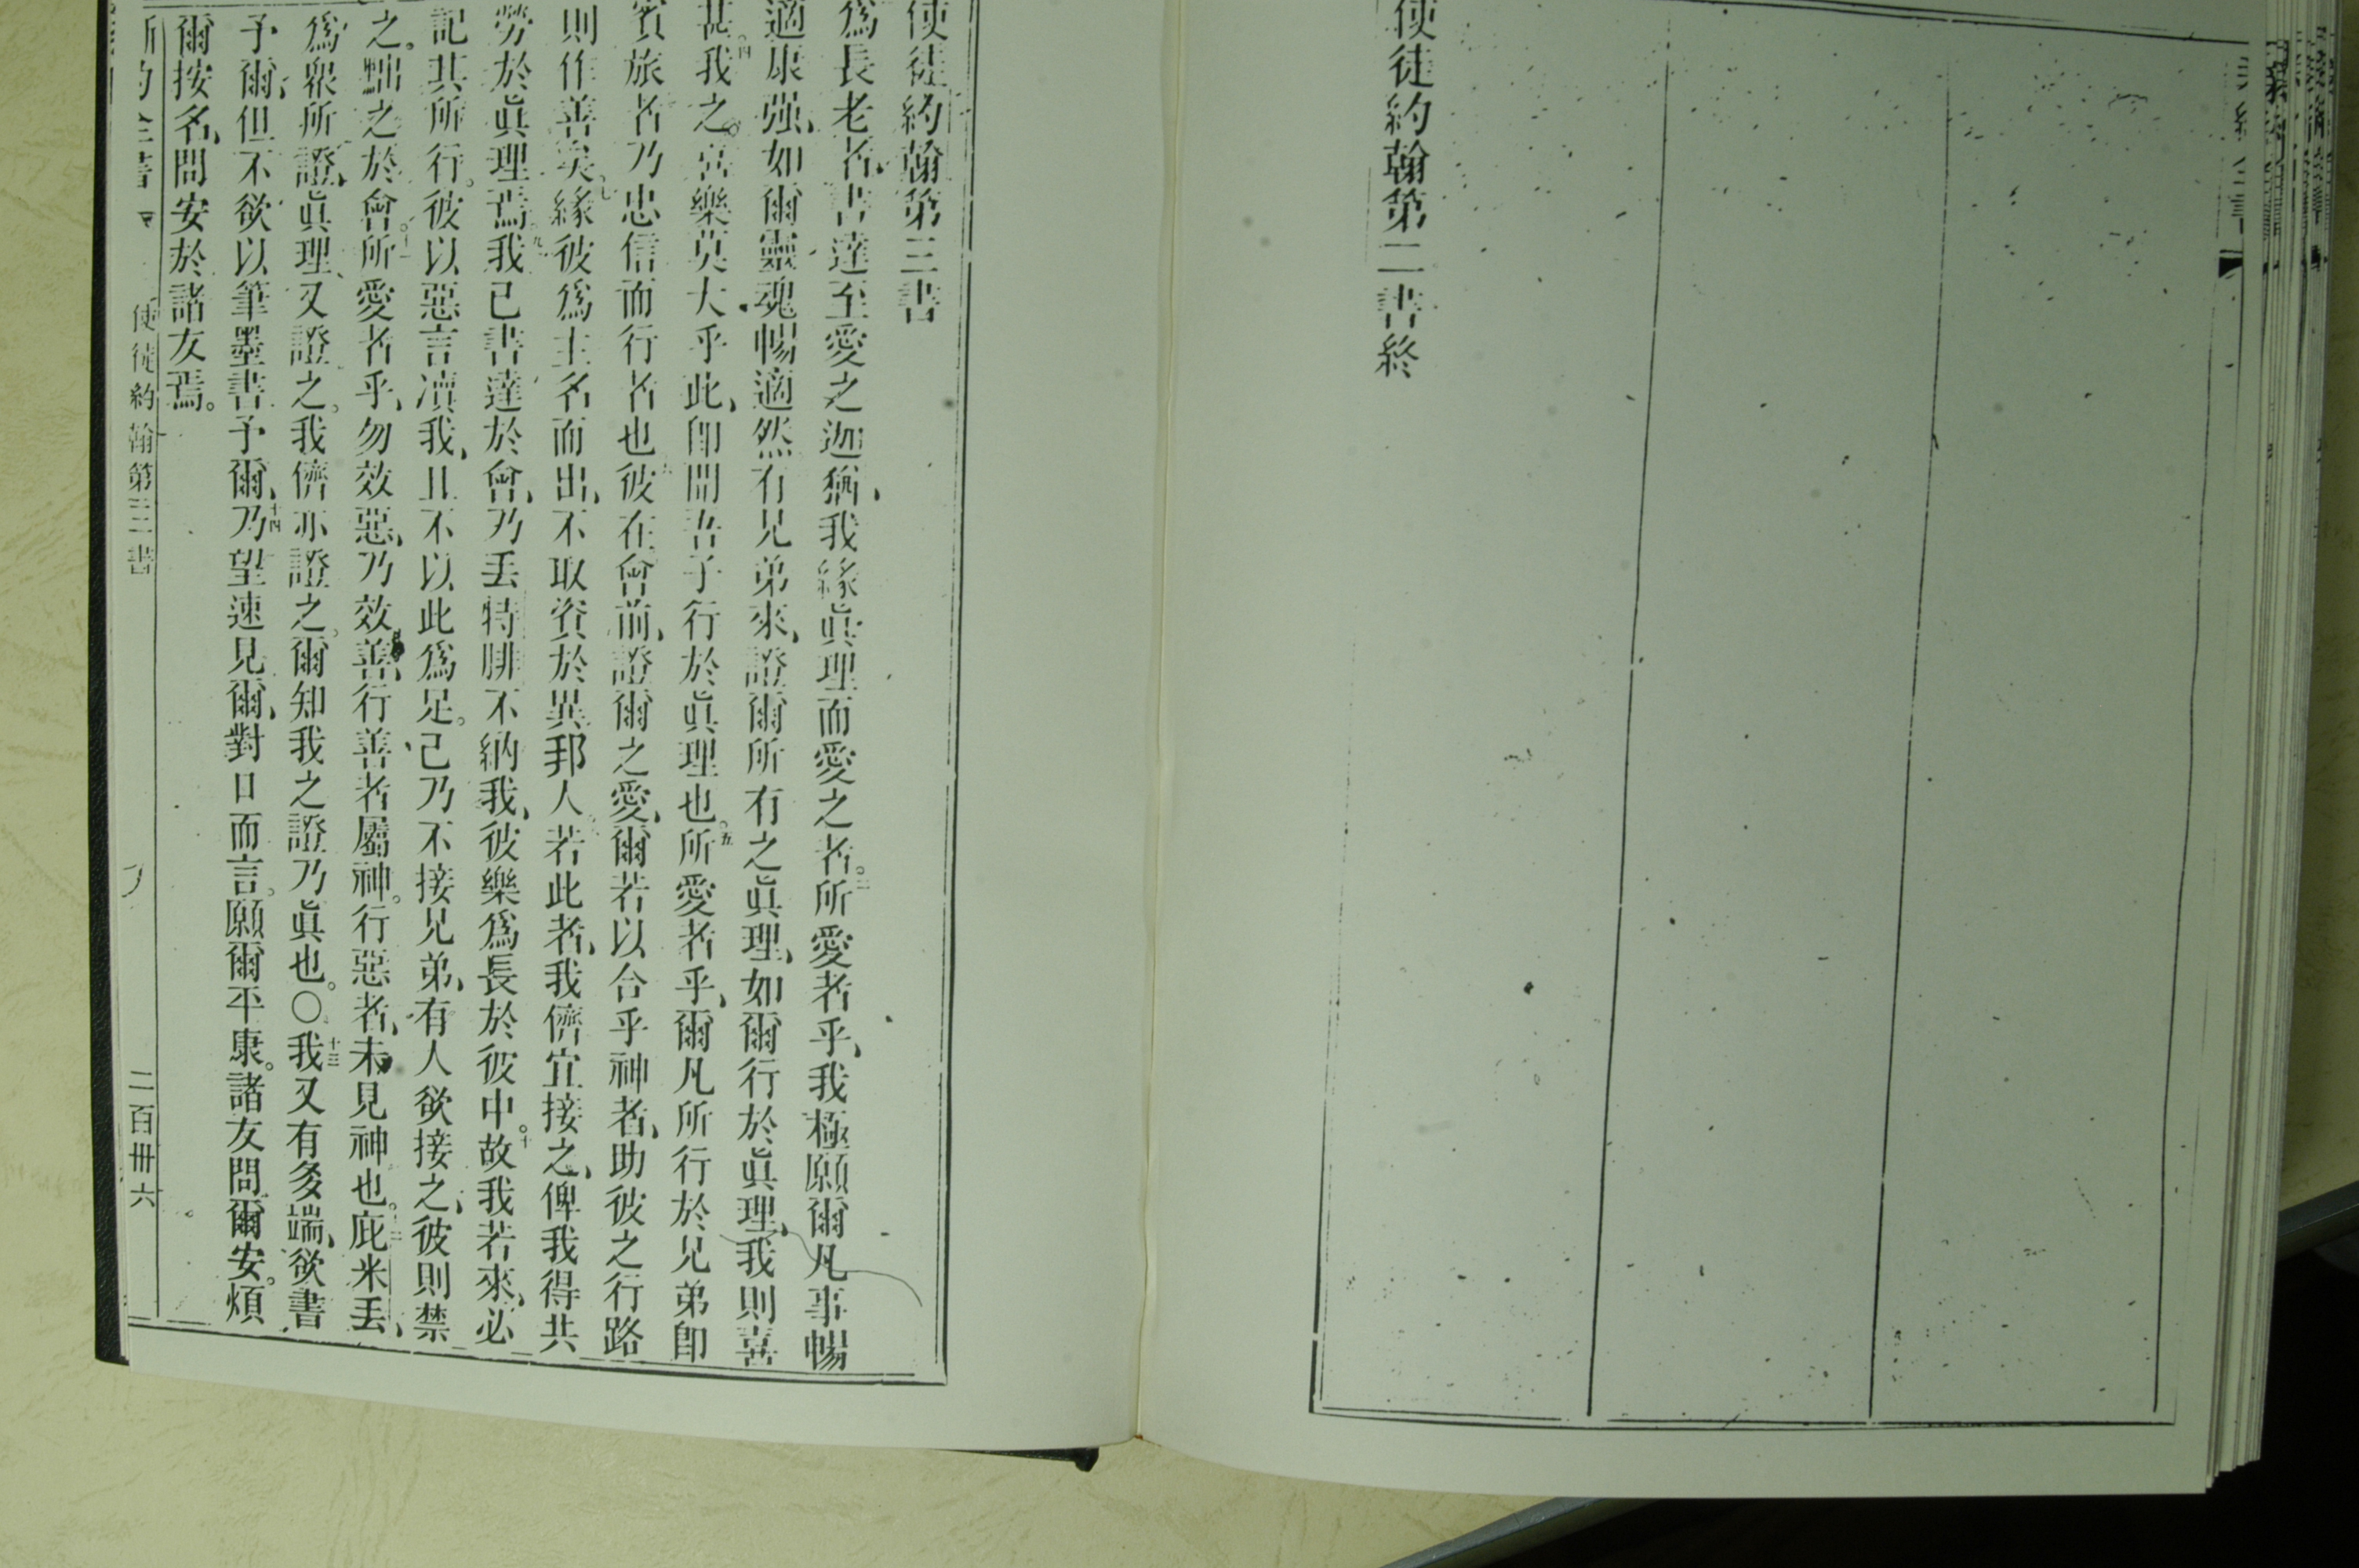 使徒約翰第二書終
使徒約翰第三書
爲長老者、書達至愛之迦猶、我緣眞理而愛之者。二所愛者乎、我極願爾凡事暢
適康强、如爾靈魂暢適然有兄弟來、證爾所有之眞理、如爾行於眞理、我則喜
甚。四我之喜樂莫大乎此、卽聞吾子行於眞理也。五所愛者乎、爾凡所行於兄弟卽
賓旅者乃忠信而行者也彼在會前、證爾之愛、爾若以合乎神者、助彼之行路
則作善矣。七緣彼爲主名而出、不取資於異邦人若此者、我儕宜接之、俾我得共
勞於眞理焉。九我已書達於會、乃丢特腓不納我、彼樂爲長於彼中。十故我若來、必
記其所行。彼以惡言凟我、且不以此爲足。己乃不接兄弟、有人欲接之、彼則禁
之。黜之於會。十一所愛者乎、勿效惡、乃效善、行善者屬神。行惡者、未見神也。十二庇米丢、
爲衆所證、眞理、又證之。我儕亦證之。爾知我之證乃眞也。〇十三我又有多端、欲書
予爾、但不欲以筆墨書予爾、十四乃望速見爾、對口而言。願爾平康。諸友問爾安。煩
爾按名、問安於諸友焉。
新約全書
使徒約翰第三書
二百卅六